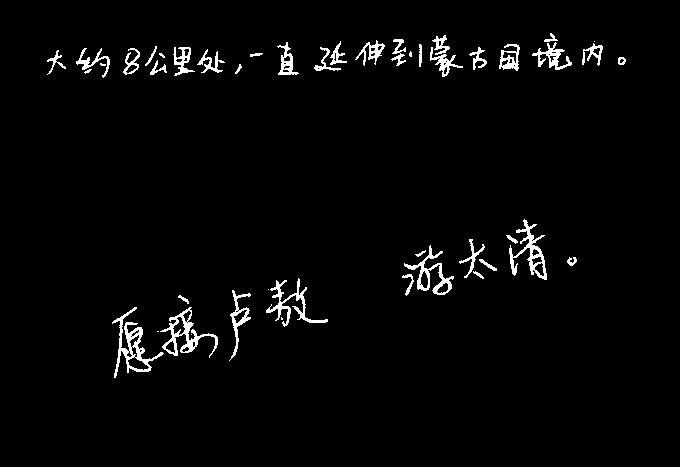 大约8公里处，一直延伸到蒙古国境内。
愿接卢敖 游太清。